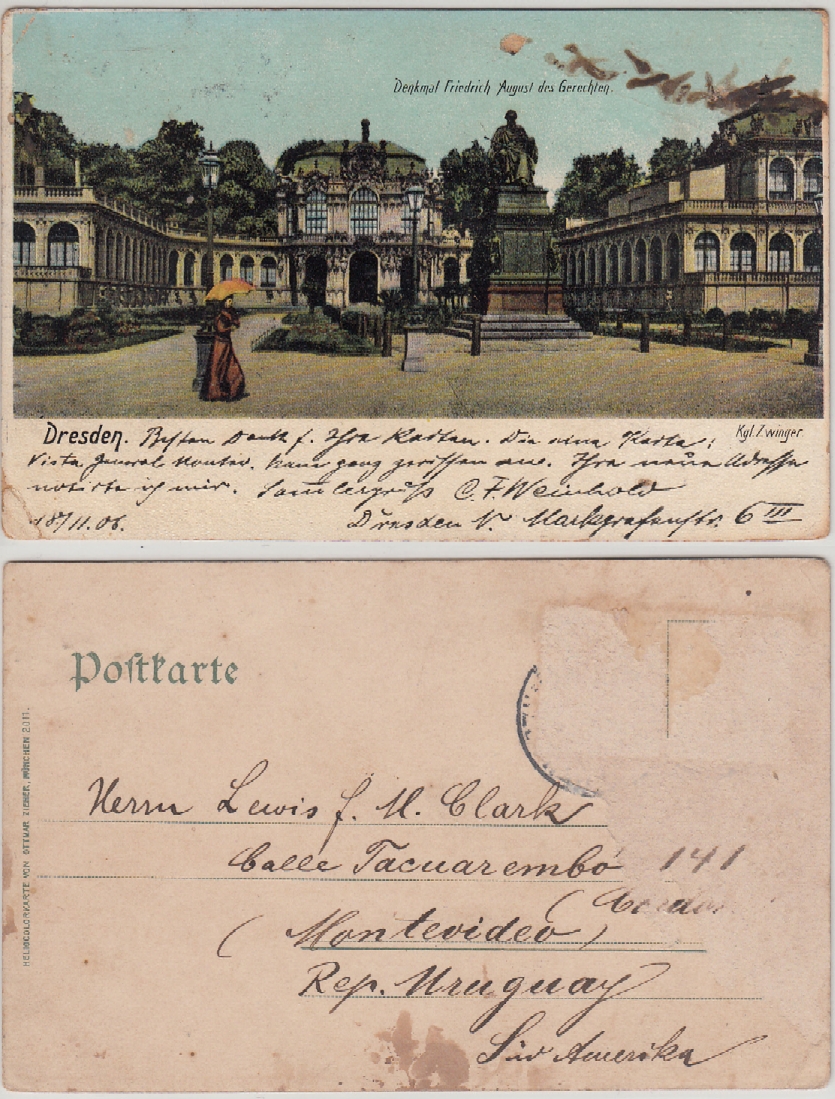 Denkmal Friedrich August des Gerechten.
Dresden. Besten Dank f. Ihre Karten. Die eine Karte:
Kgl. Zwinger
Vista General Montev. kam ganz zerissen an. Ihre neue Adresse
notirte ich mir. Sam̄lergruß C. F. Weinhold
18/11.06. Dresden N. Markgrafenstr. 6 III
Postkarte
HELIOCOLORKARTE VON OTTMAR ZIEHER, MÜNCHEN 2011.
Herrn Lewis f. M. Clark
Calle Tacuarembó 141
(Montevideo)
Rep. Uruguay
Süd Amerika